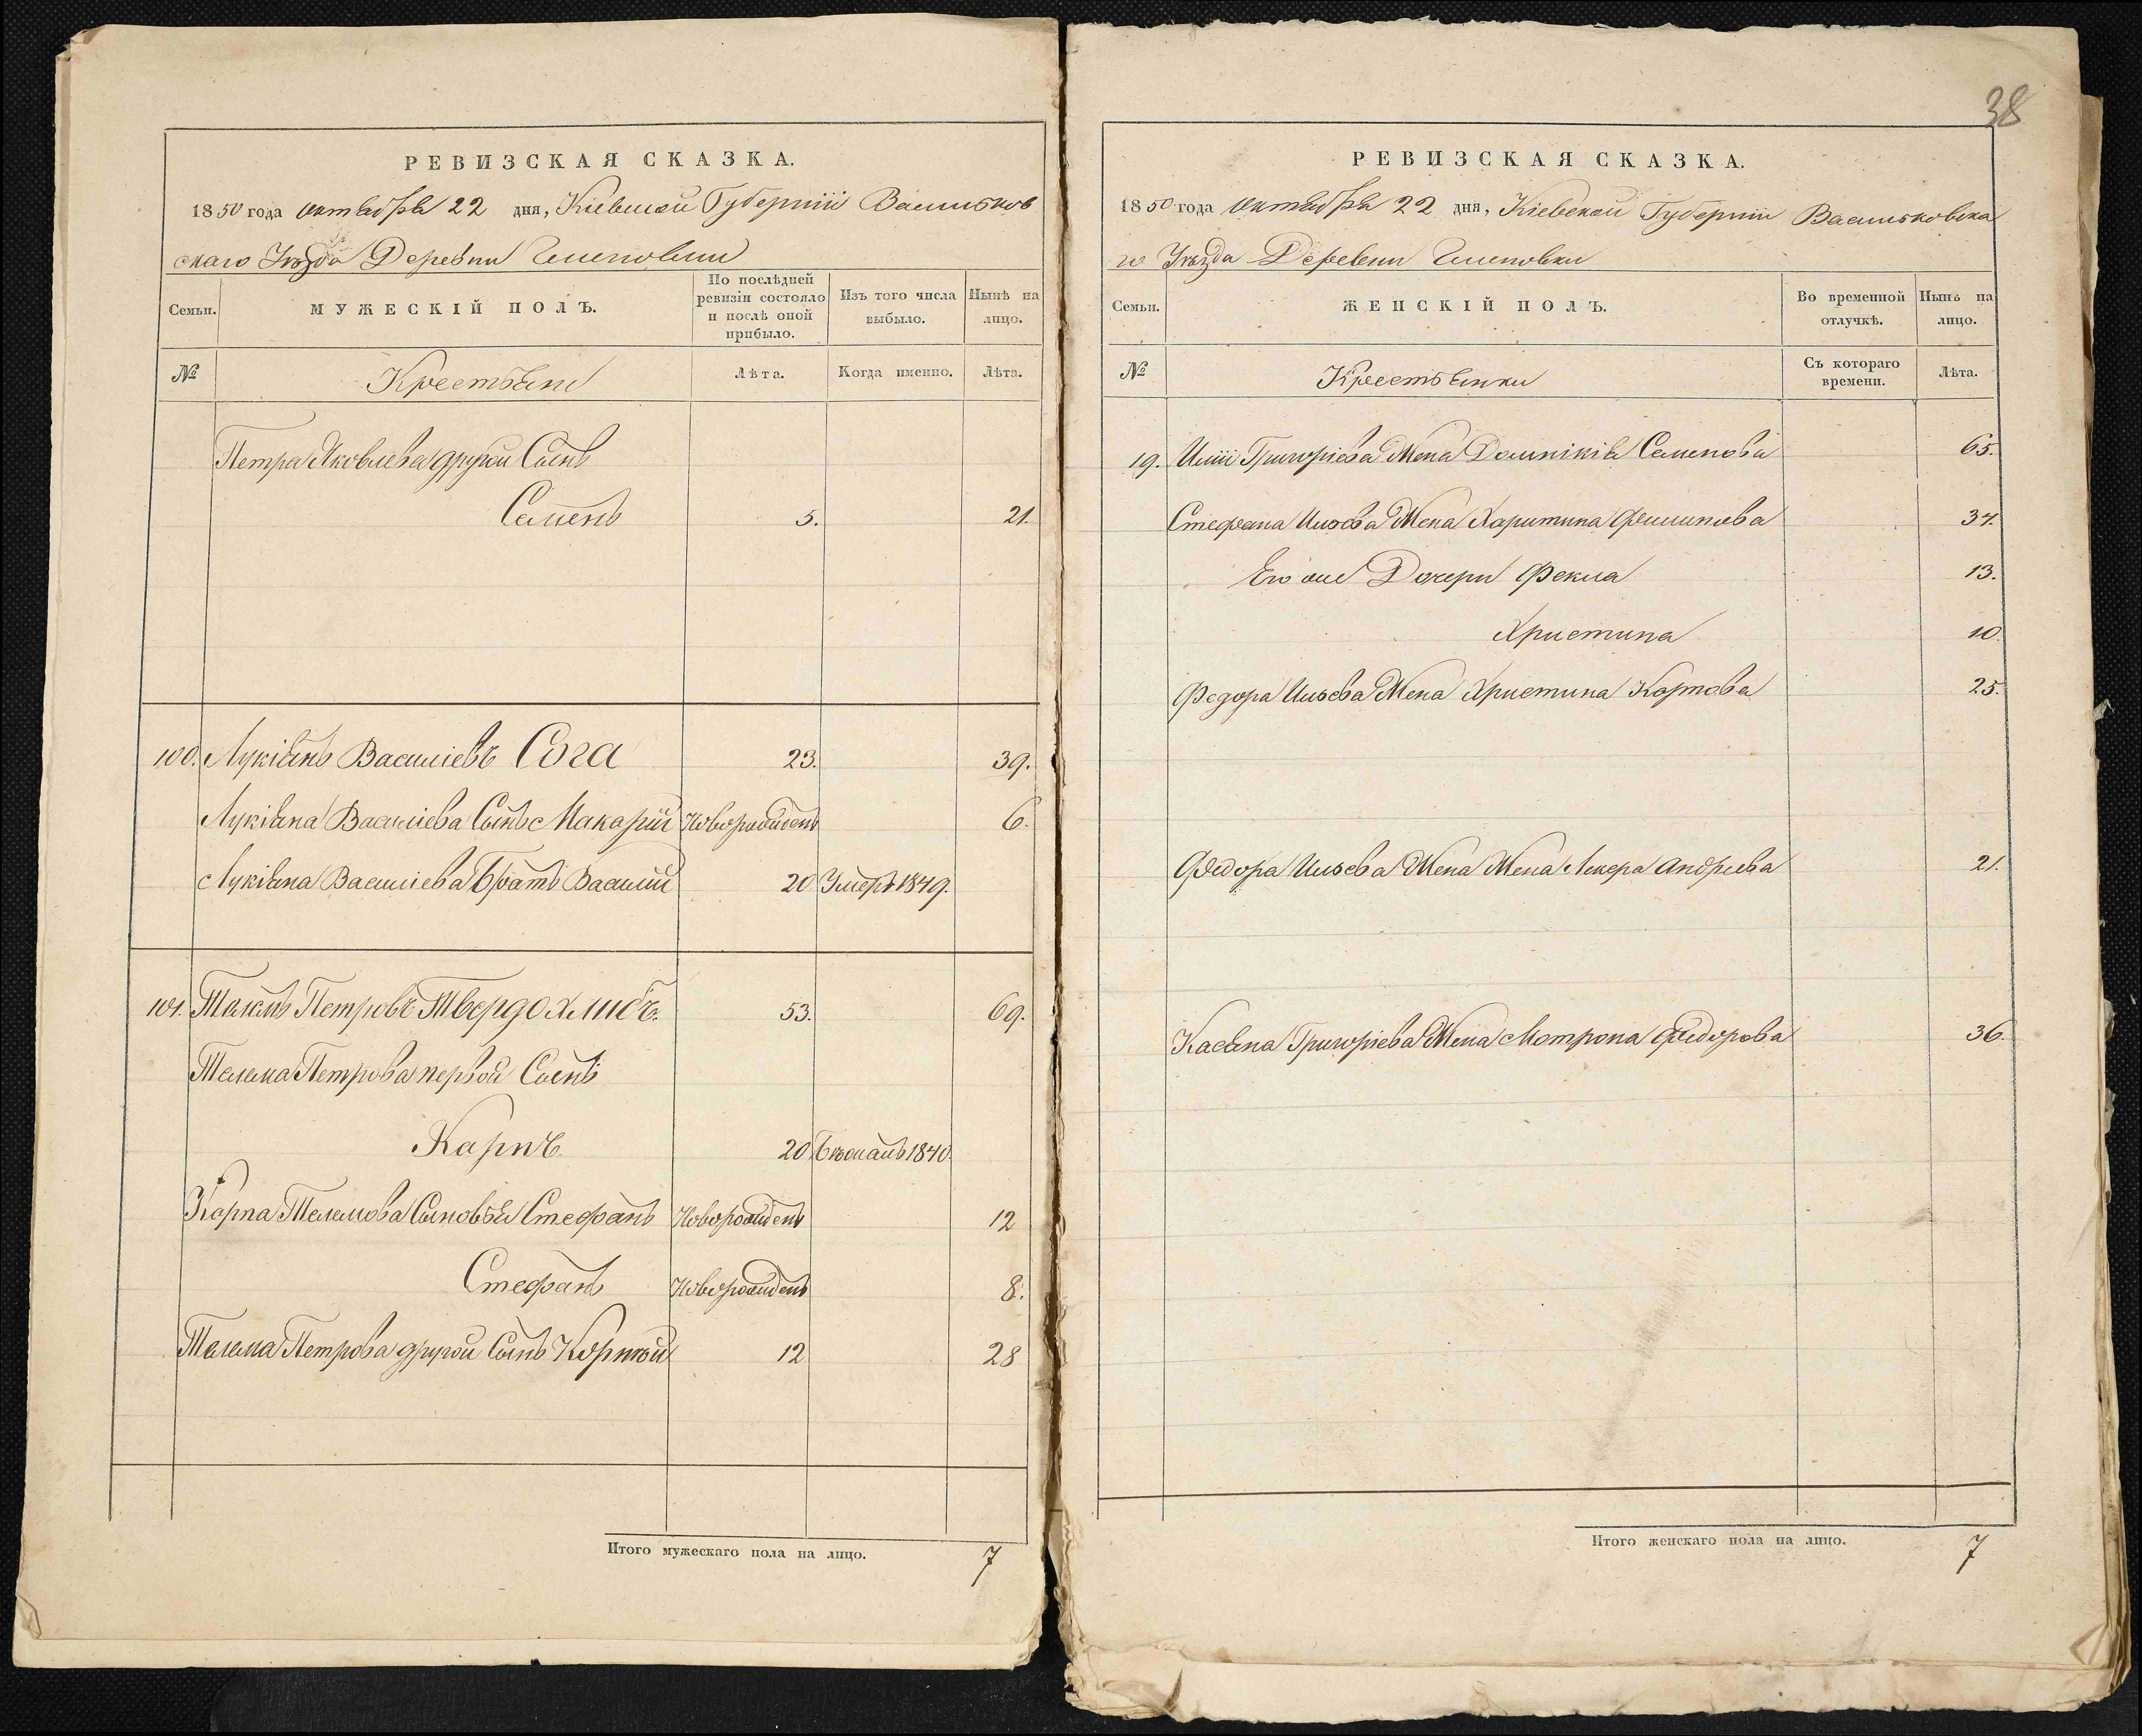 РЕВИЗСКАЯ СКАЗКА.
1850 года октября 22 дня, Кіевской Губерніи Васильков
скаго Уѣзда Деревни
Семьи.
МУЖЕСКІЙ ПОЛЪ.
По послѣдней ревизіи состояло и послѣ оной прибыло.
Изъ того числа выбыло.
Нынѣ на лицо.
№
Крестьяне
Лѣта.
Когда именно.
Лѣта.
Петра Яковлева другой Сынъ
Семенъ 5. 21.
100. Лукіянъ Василіевъ Сога 23. 39.
Лукіяна Василіева Сынъ Макарій Новорожденъ 6.
Лукіяна Василіева Братъ Василій 20 Умеръ 1849.
101. Петровъ Твердохлибъ. 53. 69.
Петрова первой Сынъ
Карпъ 20 Бѣжалъ 1840.
Карпа Сыновья Стефанъ Новорожденъ 12
Стефанъ Новорожденъ 8.
Петрова другой Сынъ Корній 12 28
Итого мужескаго пола на лицо. 7
38
РЕВИЗСКАЯ СКАЗКА.
1850 года октября 22 дня, Кіевской Губерніи Васильковска
го Уѣзда Деревни
Семьи.
ЖЕНСКІЙ ПОЛЪ.
Во временной отлучкѣ.
Нынѣ на лицо.
№
Крестьянки
Съ котораго времени.
Лѣта.
19. Иліи Григоріева Жена Домникія Семенова 65.
Стефана Ильева Жена Харитина Филипова 34.
Его же Дочери Фекла 13.
Христина 10.
Федора Ильева Жена Христина Карпова 25.
Федора Ильева Жена Жена Андреева 21.
Касьяна Григоріева Жена Мотрона Федорова 36.
Итого женскаго пола на лицо. 7